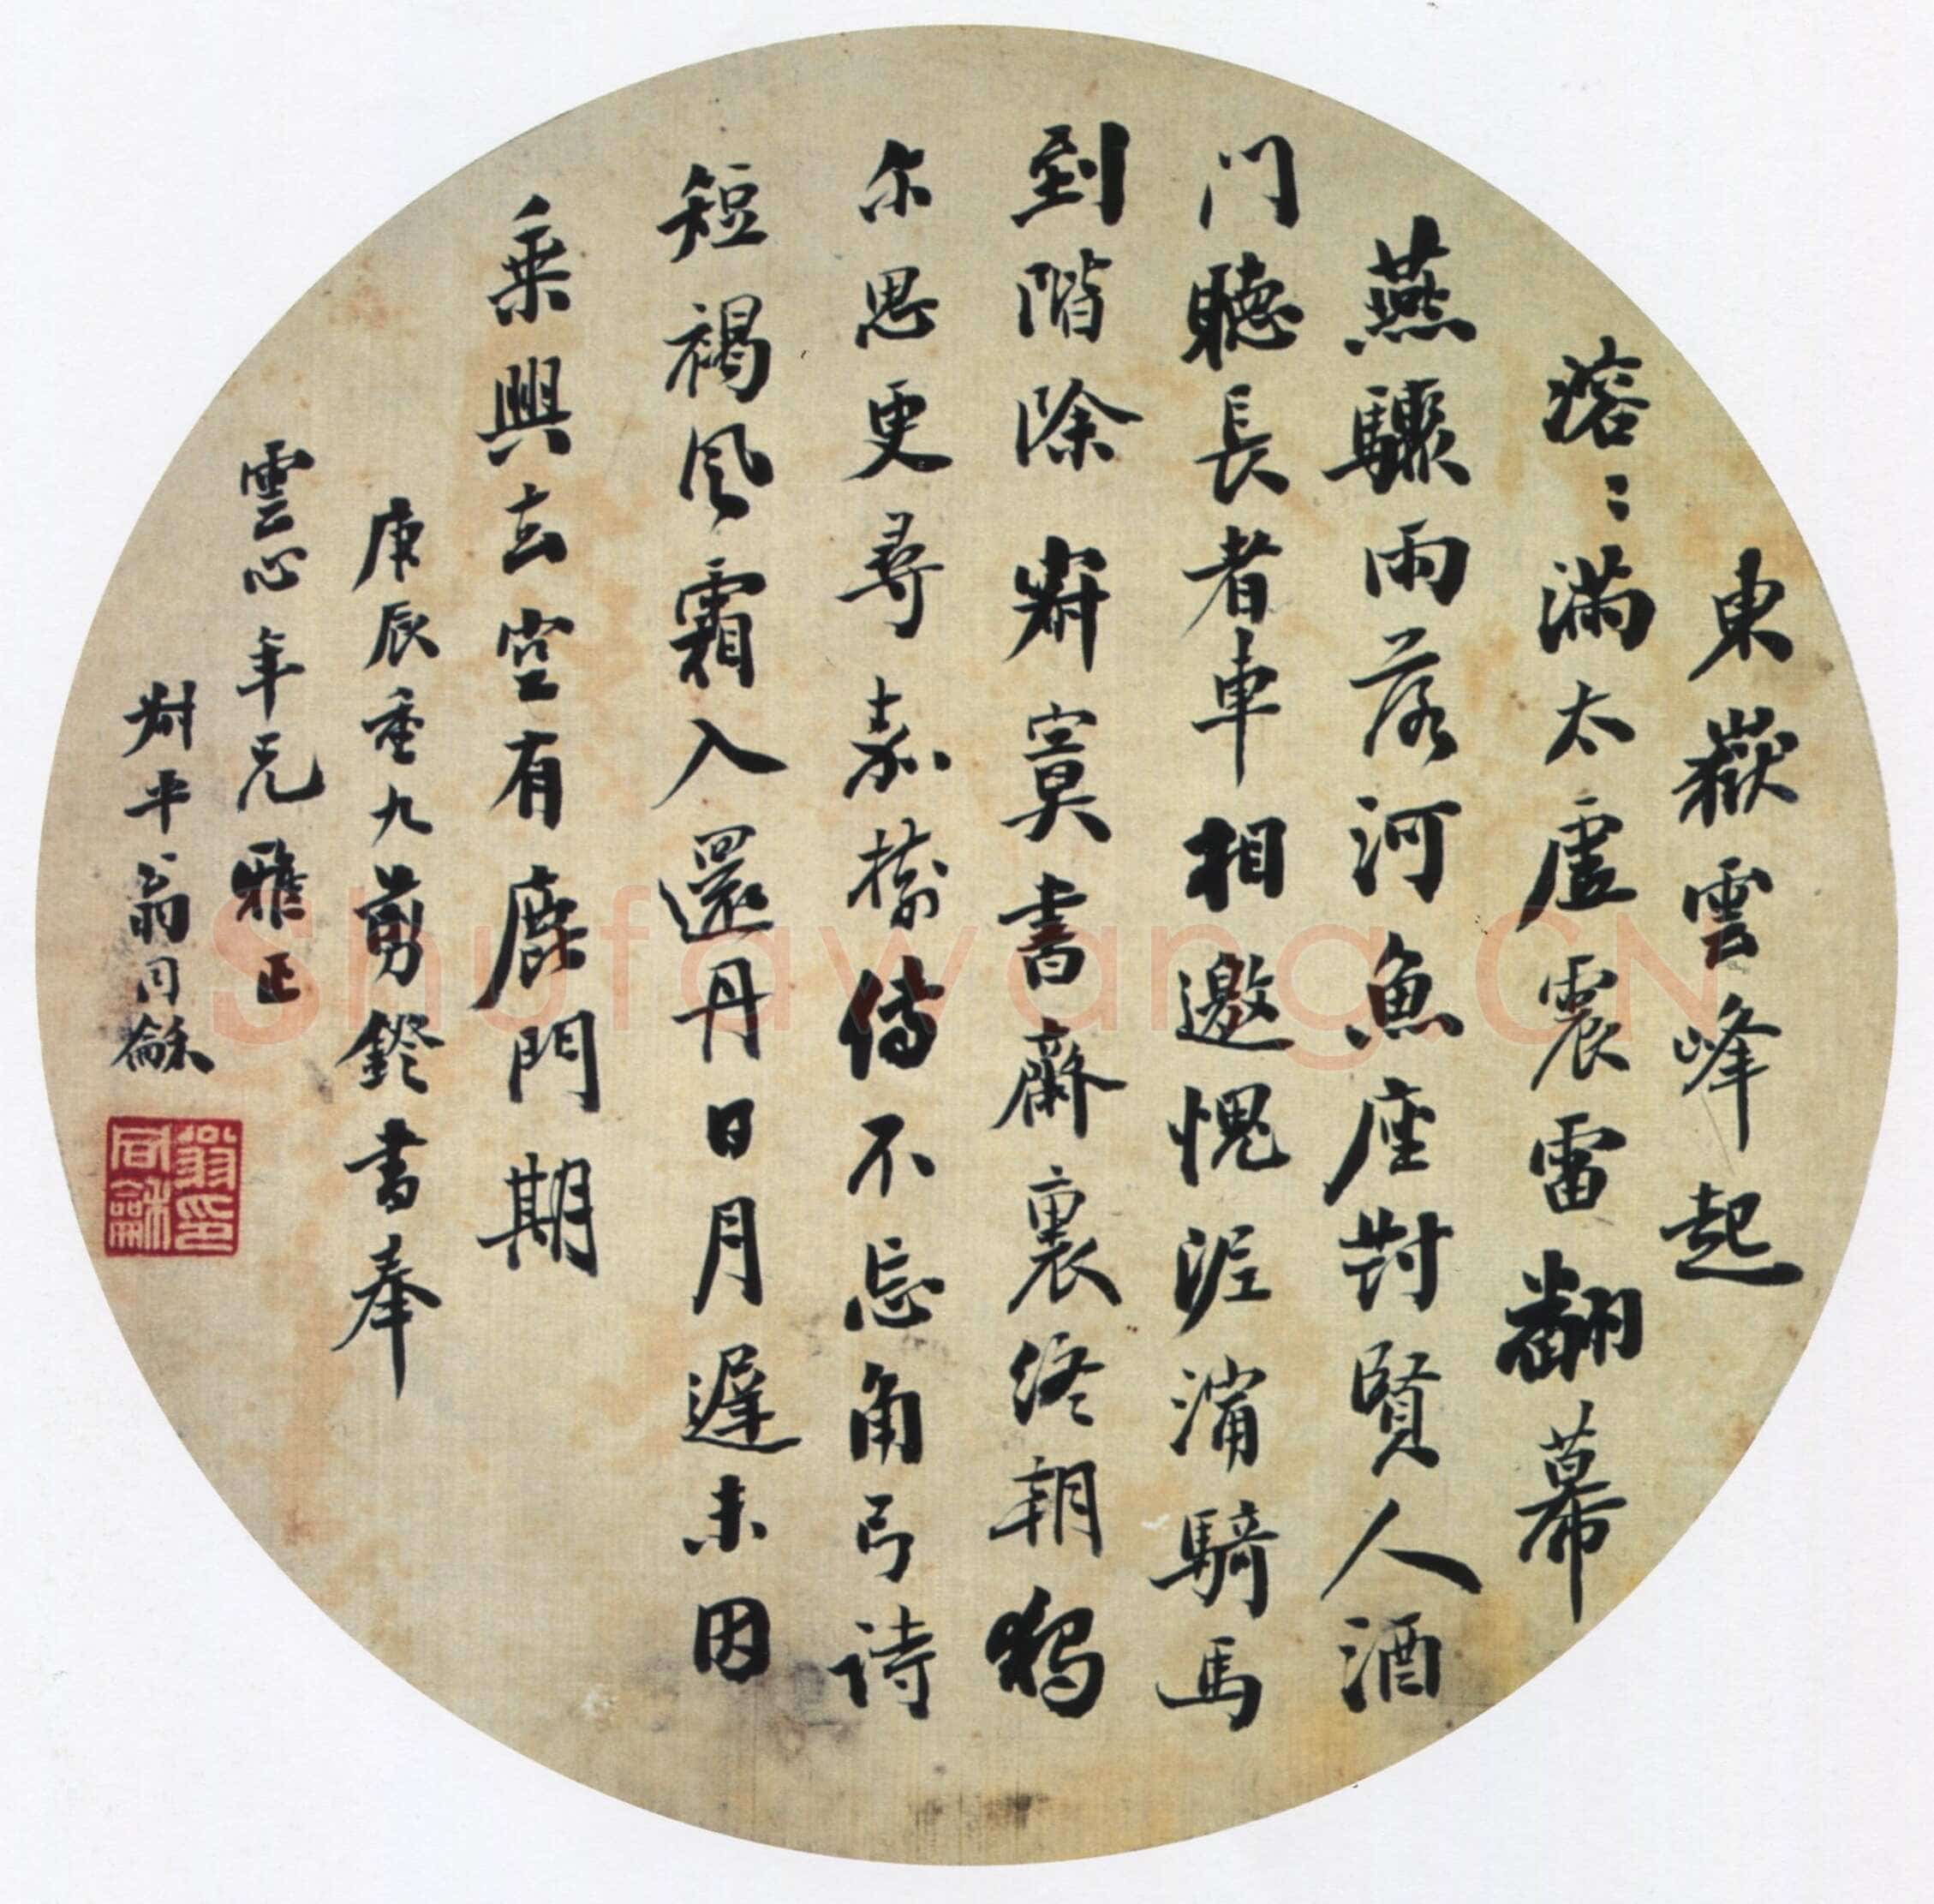 東嶽雲峰起
溶〻滿太虛震雷翻幕
燕驟雨落河魚座對賢人酒
门聽長者車相邀愧泥濘騎馬
到階除 寂寞書齋裏終朝獨
尔思更尋嘉樹傳不忘角弓詩
短褐風霜入還丹日月遲未因
乘興去空有鹿門期
庚辰重九剪鐙書奉
雲心年兄雅正
尗平翁同龢
翁印
同龢
Shufawang.CN